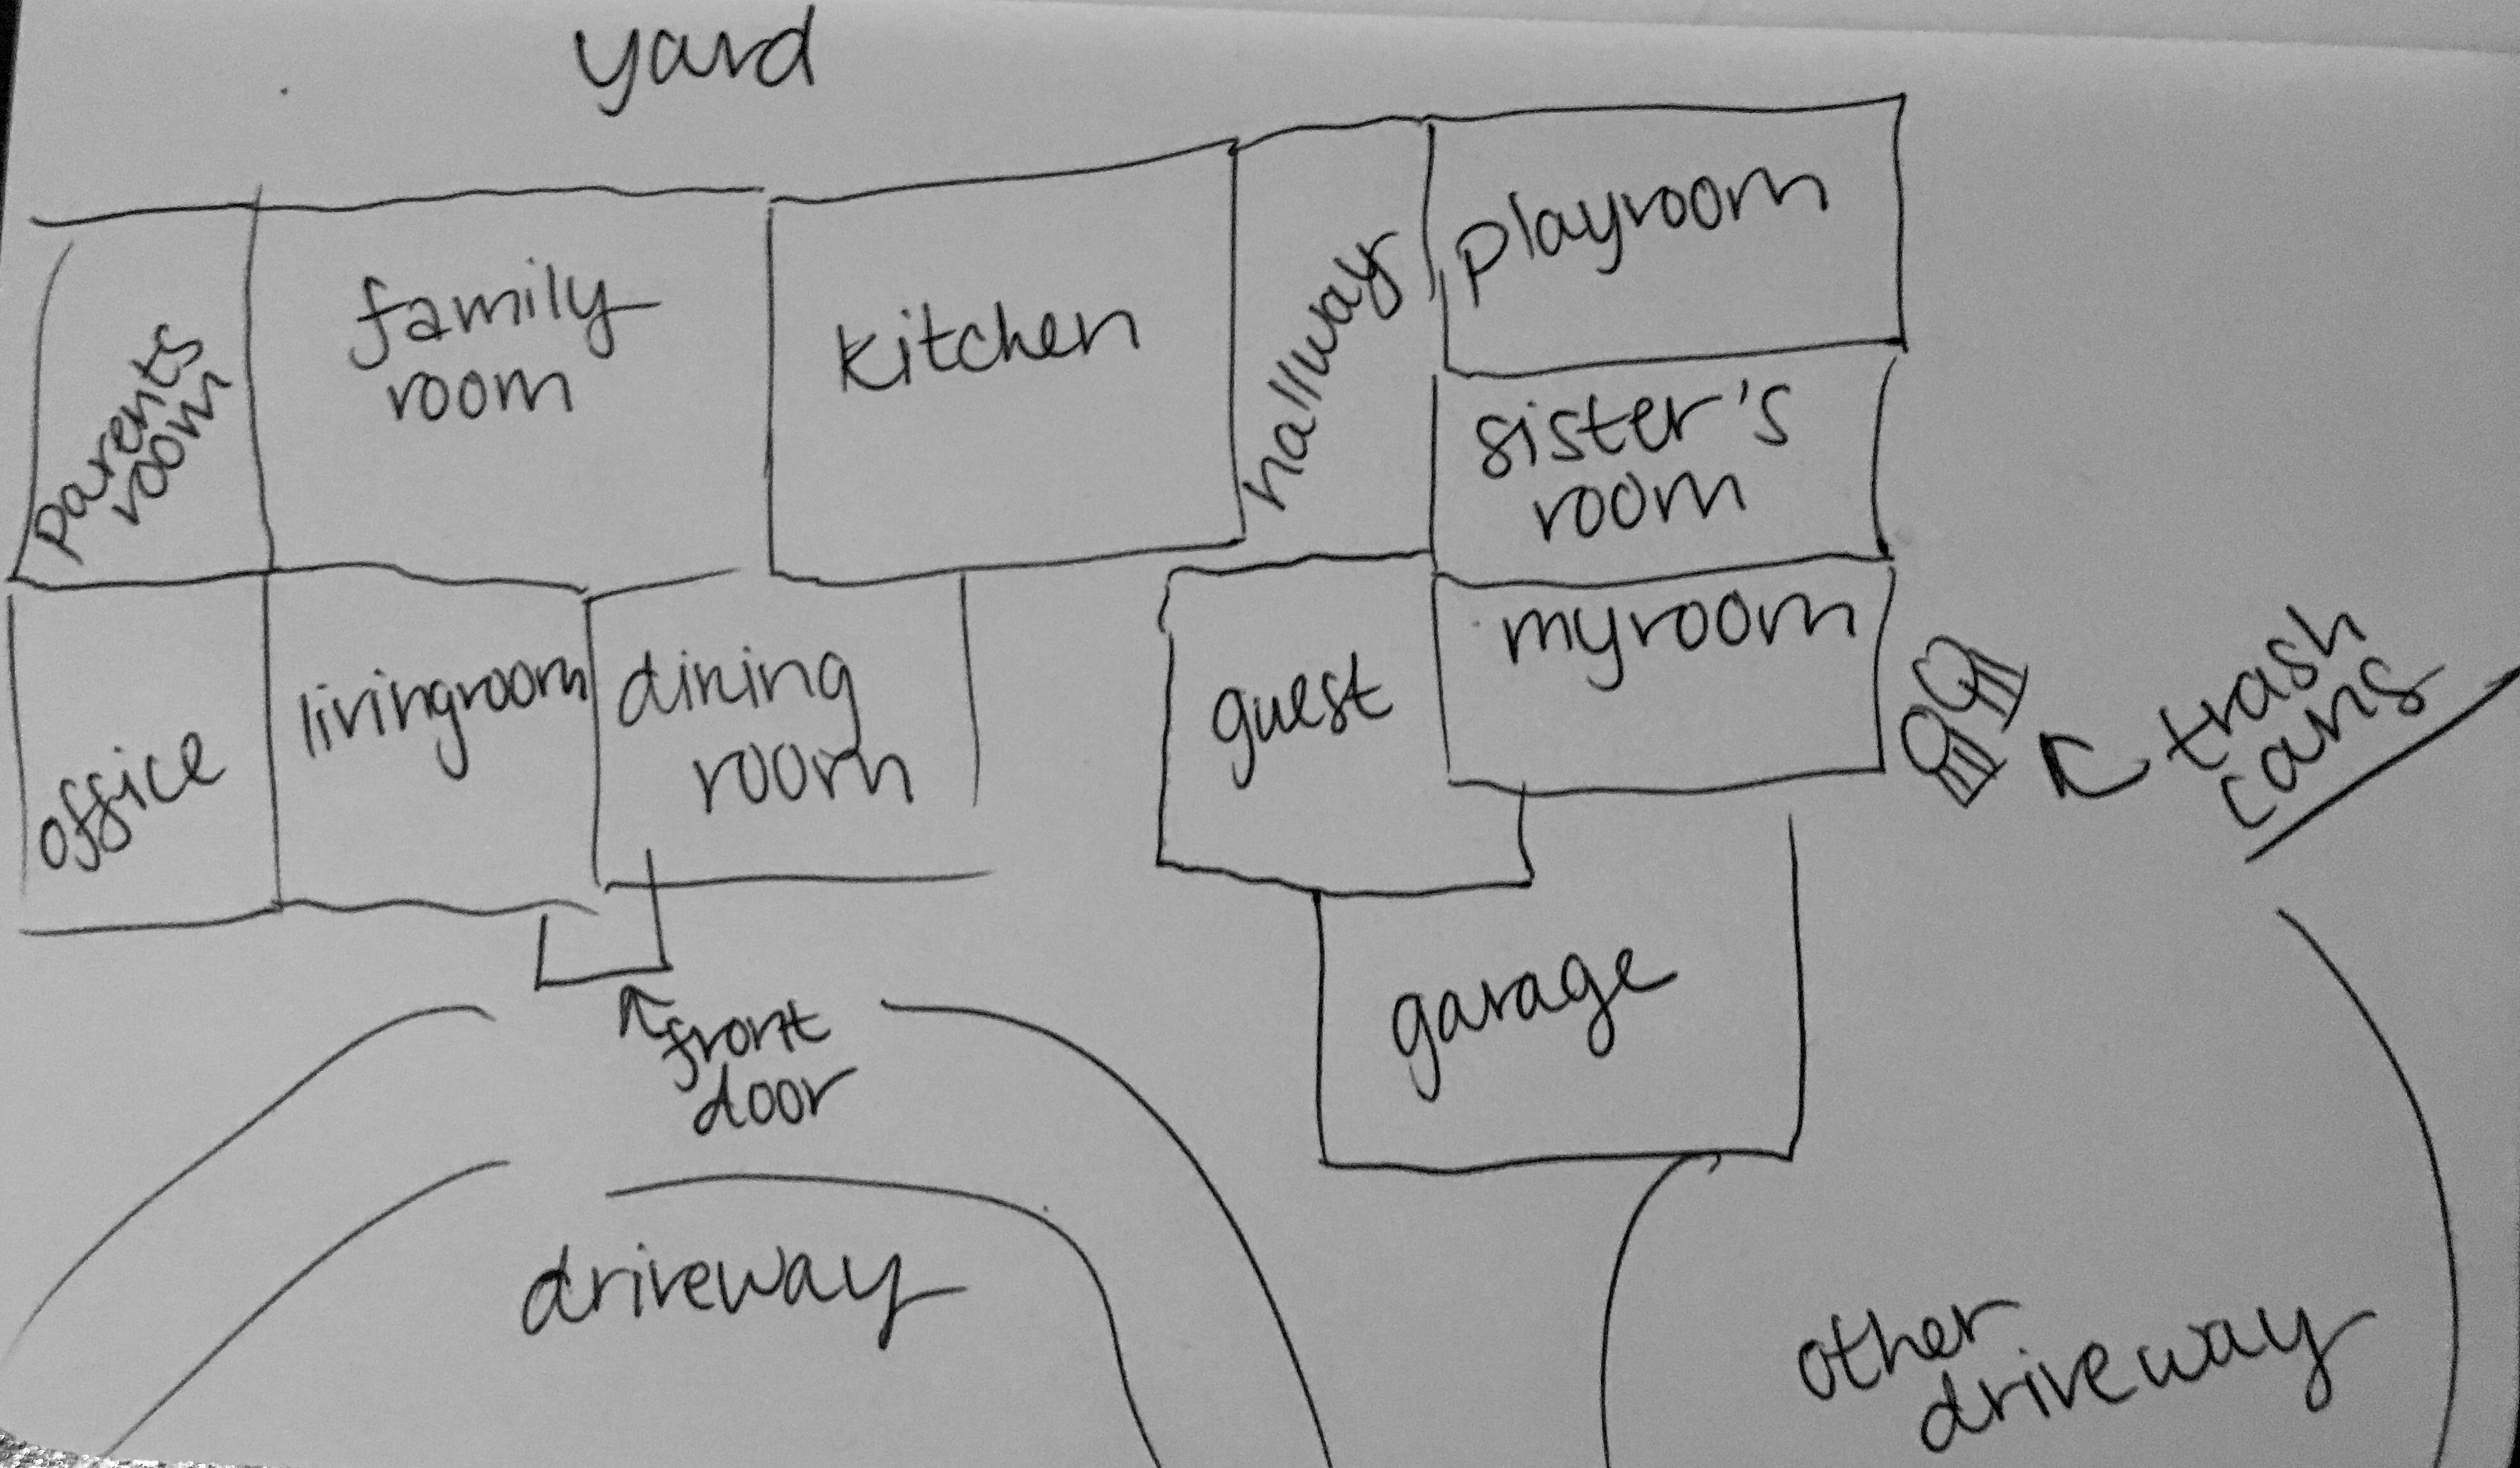 yard
parents
room
family
room
kitchen
hallway
playroom
sister's
room
office
livingroom
dining
room
guest
myroom
trash
cans
front
door
garage
driveway
other
driveway